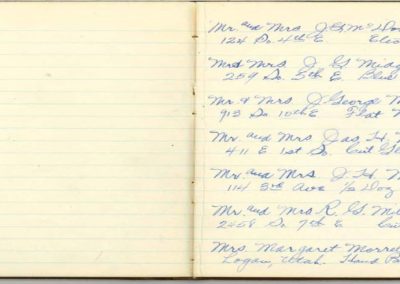 Mr. and Mrs J. G. Mc
124 So. 4th E
Mr & Mrs J G Midg
259 So. 5th E. Blue
Mr. & Mrs J. George M
913 So. 10th E Flat
Mr and Mrs Jas. H.
411 E 1st So. Cut Gl
Mr. and Mrs J. H.
114 3rd Ave ½ Doz
Mr. and Mrs R. G. Mil
2458 So 7th E
Mrs. Margaret Morre
Logan, Utah. Hand